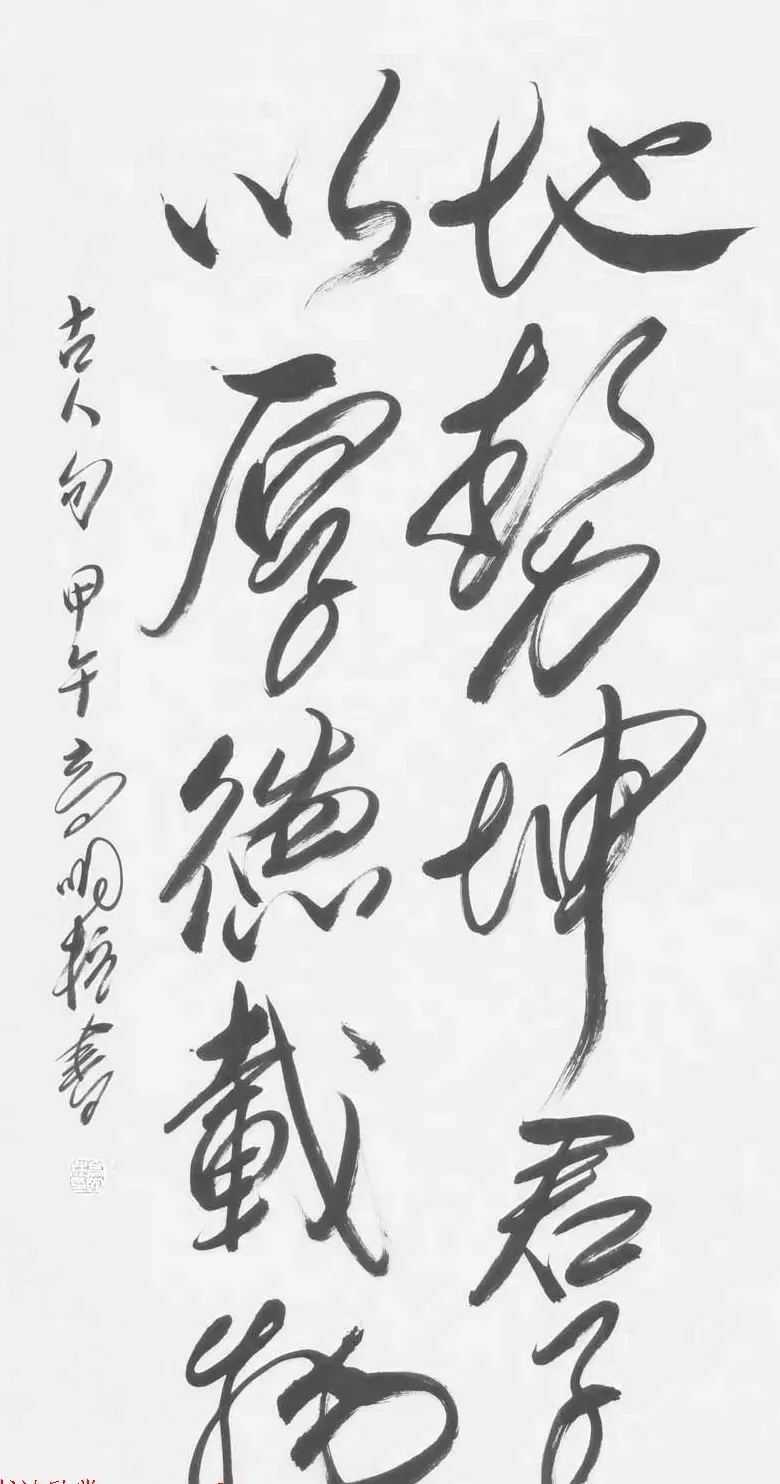 地勢坤君子
以厚德載物
古人句甲午高明柱書